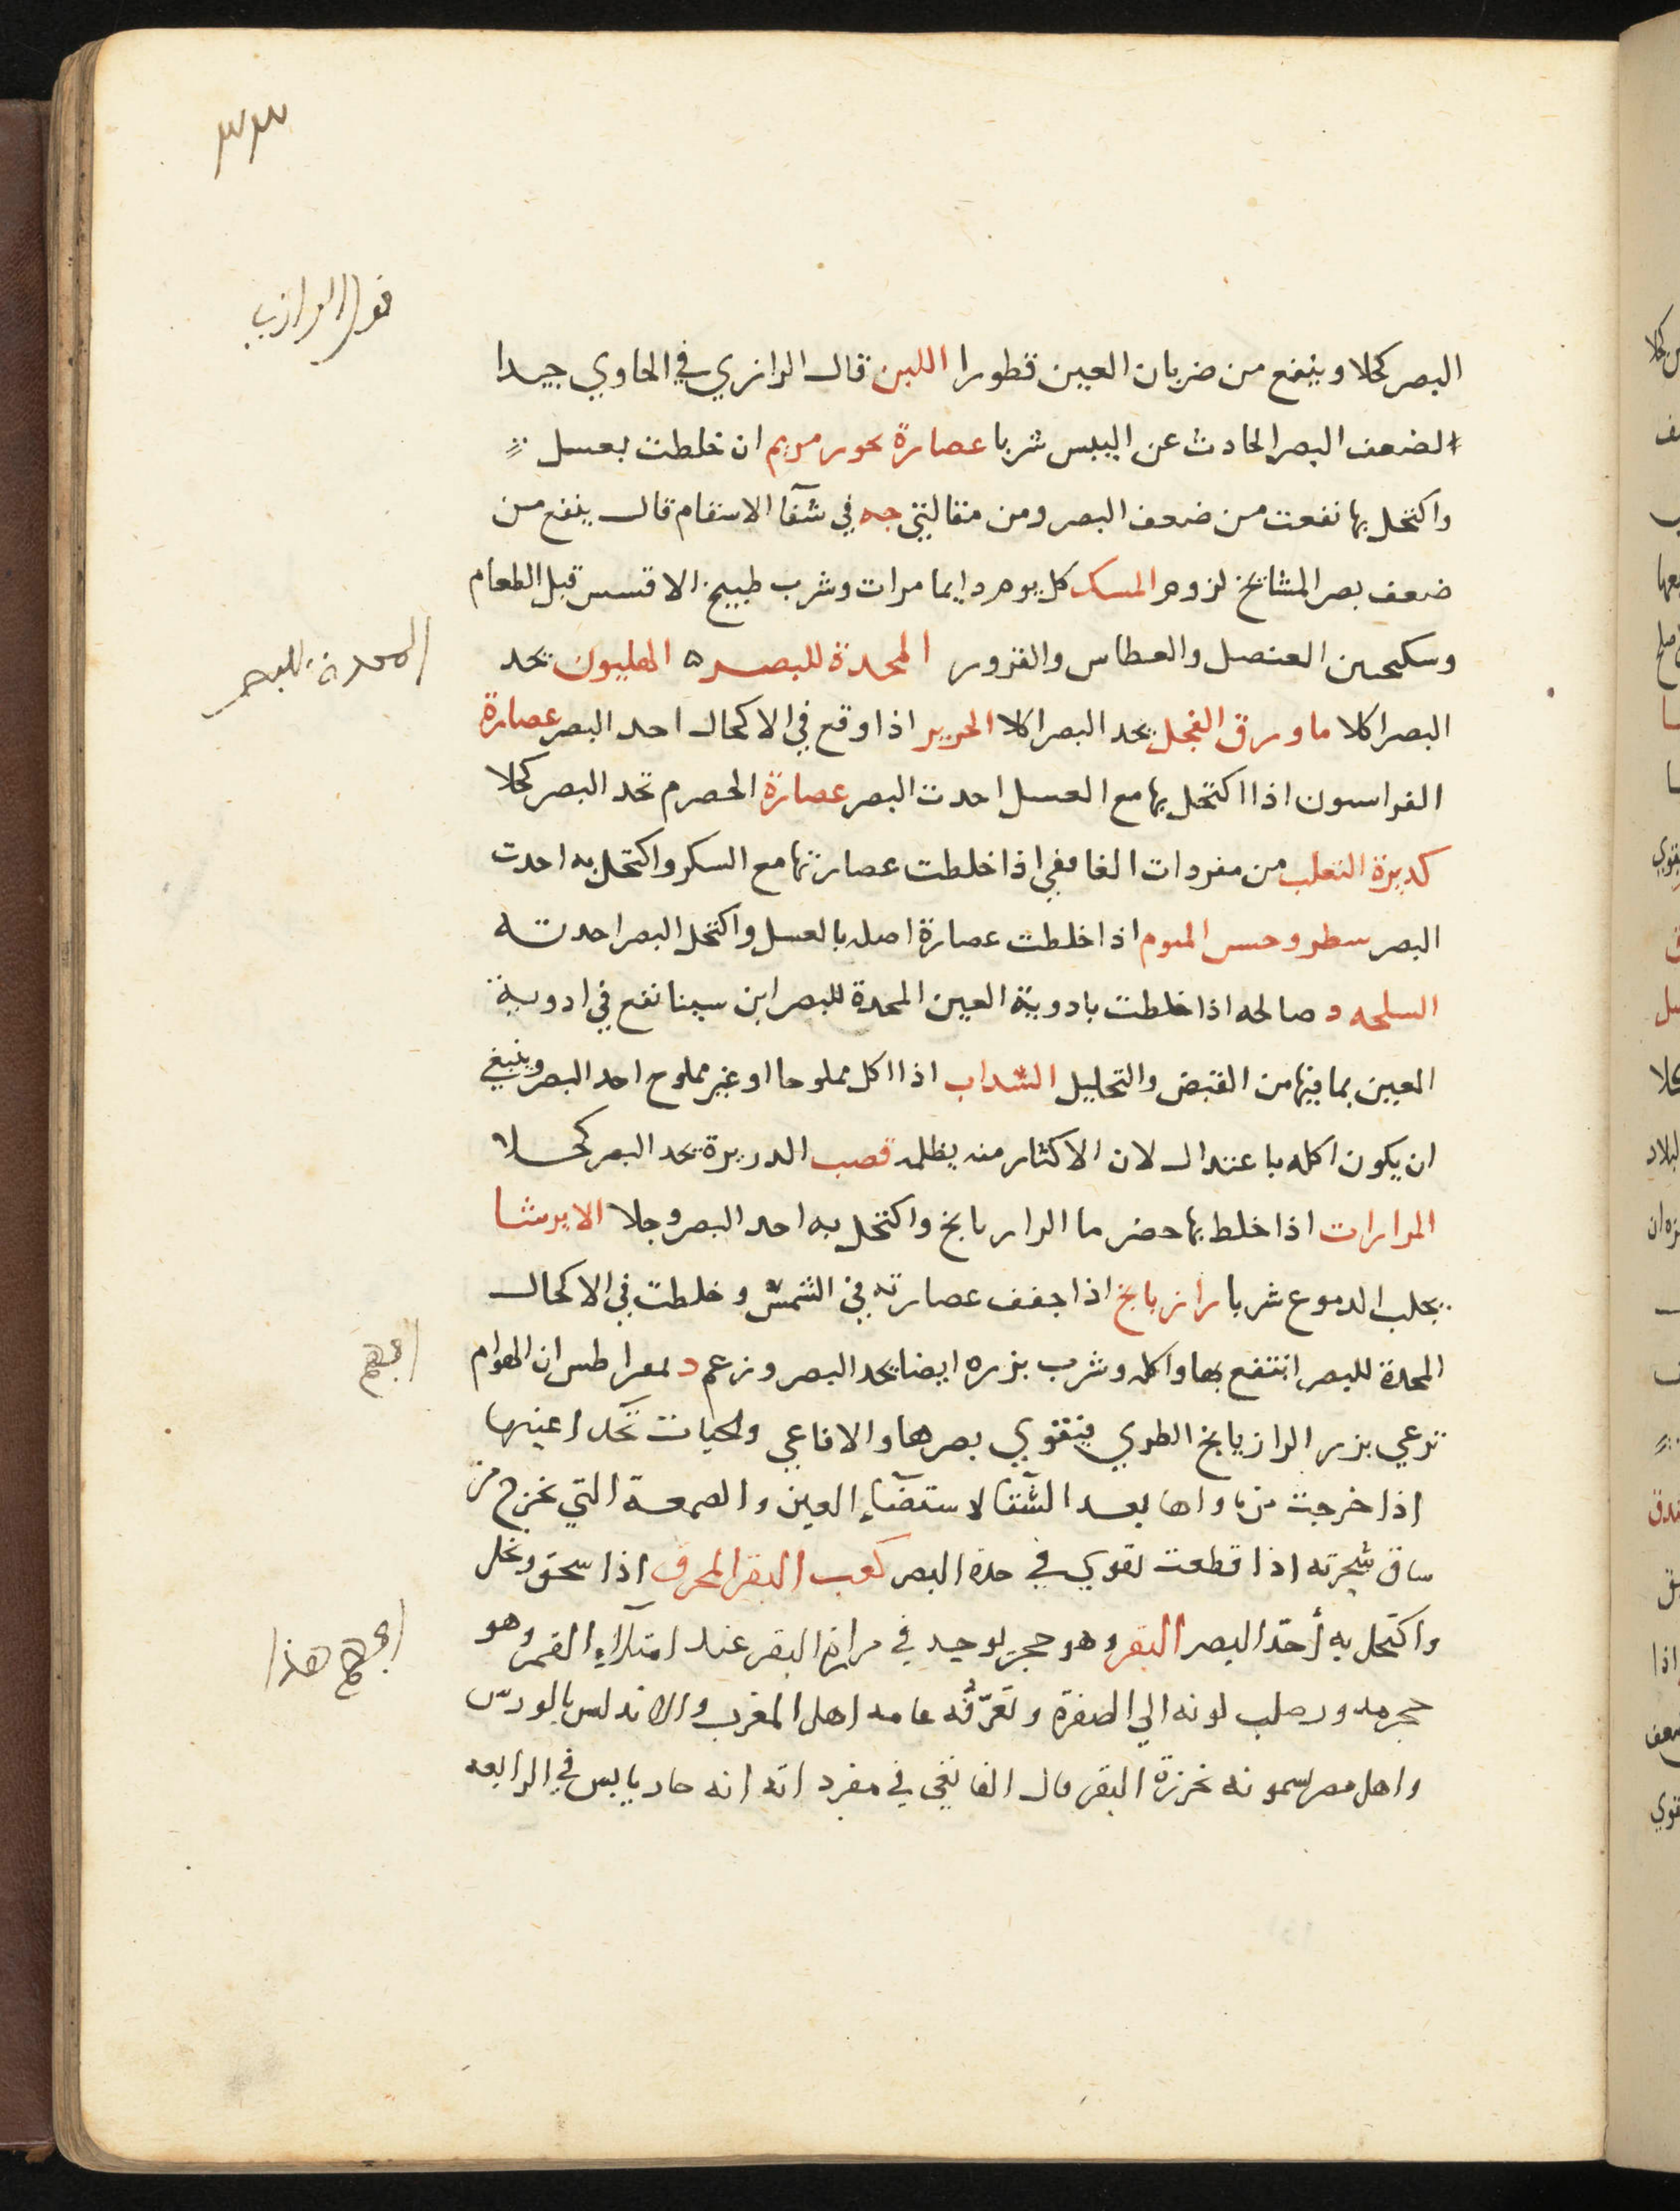 ٣٣
قول الرازي
البصر كحلا وينفع من ضربان العين قطورا اللبن قال الرازي في الحاوي جيدا
لضعف البصر الحادث عن اليبس شربا عصارة بخور مريم ان خلطت بعسل
واكتحل بها نفعت من ضعف البصر ومن مقالتي جه في شفآ الاسقام قال ينفع من
ضعف بصر المشايخ لزوم المسك كل يوم دايما مرات وشرب طبيخ الافسس قبل الطعام
وسكنجبين العنصل والعطاس والغرور المحدة للبصر ه الهليون تحد
المحدة للبصر
البصر اكلا ما ورق الفجل يحد البصر اكلا الحرير اذا وقع في الاكحال احد البصر عصارة
الفراسون اذا اكتحل بها مع العسل احدت البصر عصارة الحصرم تحد البصر كحلا
كدبرة الثعلب من مفردات الغافقي اذا خلطت عصارتها مع السكر واكتحل به احدت
البصر اذا خلطت عصارة اصله بالعسل واكتحل البصر احدته
السلحه د صالحه اذا خلطت بادوية العين المحدة للبصر ابن سينا نفع في ادوية
العين بما فيها من القبض والتحليل السداب اذا اكل مملوحا او غير مملوح احد البصر وينبغي
ان يكون اكله باعتدال لان الاكثار منه يظلمه قصب الدريرة يحد البصر كحلا
المرارات اذا خلط بها حضر ما الرازيانخ واكتحل به احد البصر وجلا الايرسا
يجلب الدموع شربا رازيانخ اذا جفف عصارته في الشمس وخلطت في الاكحال
المحدة للبصر انتفع بها واكله وشرب بزره ايضا يحد البصر وزعم دىمعراطس ان الهوام
ترعي بزر الرازيانخ الطري فيتقوي بصرها والافاعي والحيات تحكّ اعينها
اذا خرجت من ماواها بعد الشتا لاستضآءِ العين والصمغة التي تخرج من
ساق شجرته اذا قطعت تقوي في حدة البصر كعب البقر المحرق اذا سحق ونخل
واكتحل به أحدّ البصر البقر وهو حجر يوجد في مرارة البقر عند امتلآءِ القمر وهو
اعجم هذا
حجر مدور صلب لونه الي الصفرة وتعرّفُه عامه اهل المغرب والاندلس بالورس
واهل مصر يسمونه خرزة البقر قال الغافقي في مفرداته انه حار يابس في الرابعه